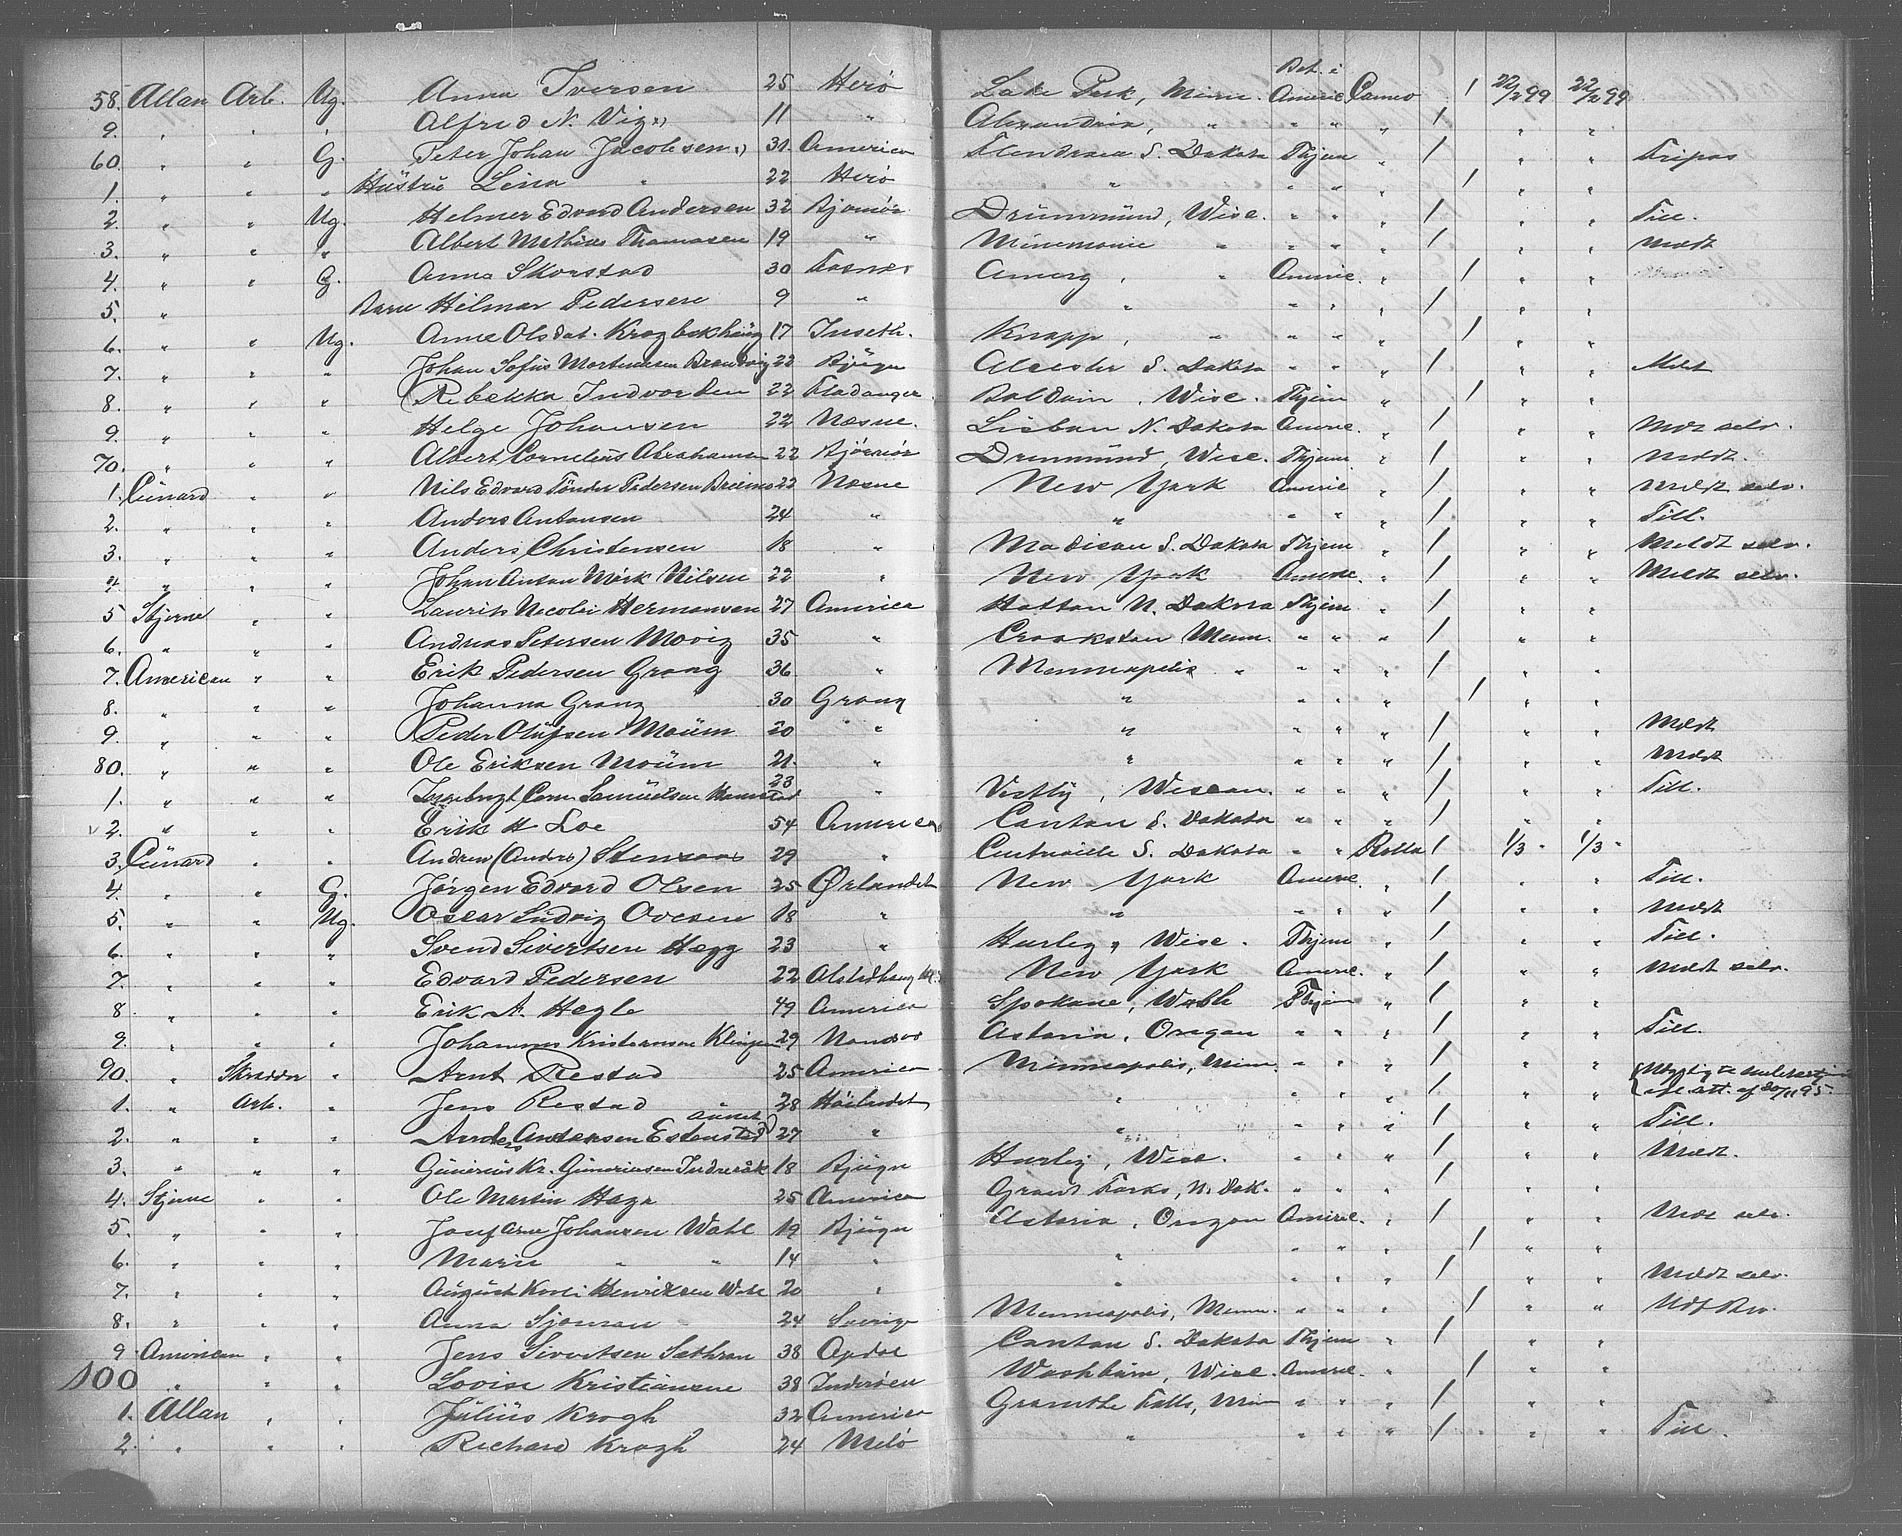 Bet. i
58. Allan Arb. Ug. Anna Iversen 25 Herø Lake Park, Minn. Americ. Cameo 1 22/2 99 22/2 99
9. " " " Alfred N. Vig 11 " Alexandria, " " " " 1 " "
60. " " G. Peter Johan Jacobsen 31 America Flendreau S. Dakota Thjem " 1 " " Fripas
1. " " " Hustru Lina " 22 Herø " " " " 1 " "
2. " " Ug. Helmer Edvard Andersen 32 Bjørnør Drummund, Wisc. " " " 1 " " Till.
3. " " " Albert Mathias Thomasen 19 " Minemonie " " " " 1 " " Meldt
4. " " G. Anna Skorstad 30 Fosnes Amery, " Americ. " 1 " "
5. " Barn Hilmar Pedersen 9 " " " " " 1 " "
6. " " Ug. Anne Olsdat. Krogbekhaug 17 Inseth. Knapp, " " " " 1 " "
7. " " " Johan Sofus Mortensen Brandvig 22 Bjugn Alcester S. Dakota " " " 1 " " Meldt
8. " " " Rebekka Indvorden 22 Fladanger Baldwin, Wisc. Thjem " 1 " "
9. " " " Helge Johansen 22 Næsne. Lisbon N. Dakota Americ. " 1 " " selv.
70. " " " Albert Cornelius Abrahamsen 22 Bjørnør Drummund, Wisc. Thjem " 1 " " Meldt.
1. Cunard " " Nils Edvard Tønder Pedersen 22 Næsne New York Americ " 1 " " Meldt selv.
2. " " " Anders Antonsen 24 " " " " " 1 " " Till.
3. " " " Anders Christensen 18 " Madison S. Dakota Thjem " 1 " " Meldt selv.
4. " " " Johan Anton Mörk Nilsen 22 " New York Americ. " 1 " " Meldt selv.
5 Stjerne " " Laurits Nicolai Hermansen 27 America Hatton N. Dakota Thjem " 1 " "
6. " " " Andreas Petersen Movig 35 " Crookston Minn. " " " 1 " "
7. American " " Erik Pedersen Grong 36 " Minneapolis " " " " 1 " "
8. " " " Johanna Grong 30 Grong " " " " 1 " "
9. " " " Peder Olufsen Moum 20 " " " " " 1 " " Meldt
80. " " " Ole Eriksen Moum 21. " " " " " 1 " " Meldt
1. " " " Samuelsen 23 " Westby, Wiscon. " " " 1 " " Till.
2. " " " Erik H Loe 54 America Canton S. Dakota " " " 1 " "
3. Cunard " " Andrew (Anders) Stensaas 29 " Centraille S. Dakota " " Rollo 1 1/3 " 1/3 "
4. " " G. Jørgen Edvard Olsen 25 Ørlandet New York Americ. " 1 " " Till.
5. " " Ug. Oscar Ludvig Ovesen 18 " " " " " 1 " " Meldt
6. " " " Svend Sivertsen Hegg 23 " Hurley, Wisc. Thjem " 1 " " Till.
7. " " " Edvard Pedersen 22 Alstahaug New York Americ. " 1 " " Meldt selv.
8 " " " Erik A. Hegle 49 America Spokane, Wash Thjem " 1 " "
9. " " " Johannes Kristiansen 29 Namsos Astoria, Oregon " " " 1 " " Till.
90. " Skrædder " Arnt Restad 25 America Minneapolis, Minn. " " " 1 " "
1. " Arb. " Jens Restad 28 Høilandet " " " " 1 " " att. af 20/11 95.
2. " " " Anders Andersen Estenstad 27 " " " " " 1 " " Till.
3. " " " Gunerius Kr. Guneriusen 18 Bjugn Hurley, Wisc. " " " 1 " " Meldt.
4. Stjerne " " Ole Martin Haga 25 America Grand Forks, N. Dak. " " " 1 " "
5. " " " Johansen Wahl 19 Bjugn Astoria, Oregon Americ. " 1 " " selv.
6. " " " Marie " " 14 " " " " " 1 " "
7. " " " August Henriksen Wahl 20 " " " " " 1 " " Meldt selv.
8. " " " Anna Sjöman 24 Sverige Minneapolis, Minn. " " " 1 " "
9 American " " Jens Sivertsen Sæthran 38 Opdal Canton S. Dakota Thjem " 1 " "
100 " " " Lovise Kristiansen 38 Inderøen Washburn, Wisc. Americ. " 1 " "
1. Allan " " Julius Krogh 32 America Granithe Falls, Min " " " 1 " "
2. " " " Richard Krogh 24 Melø " " " " 1 " " Till.